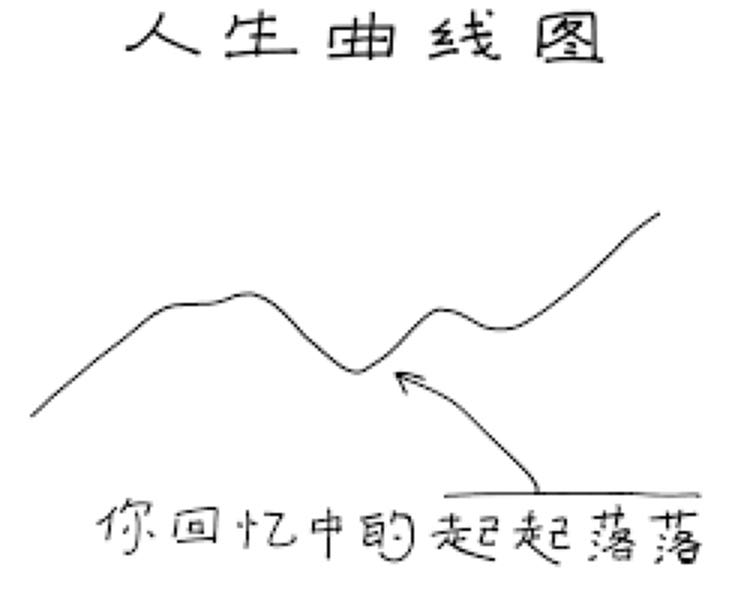 人生曲线图
你回忆中的起起落落